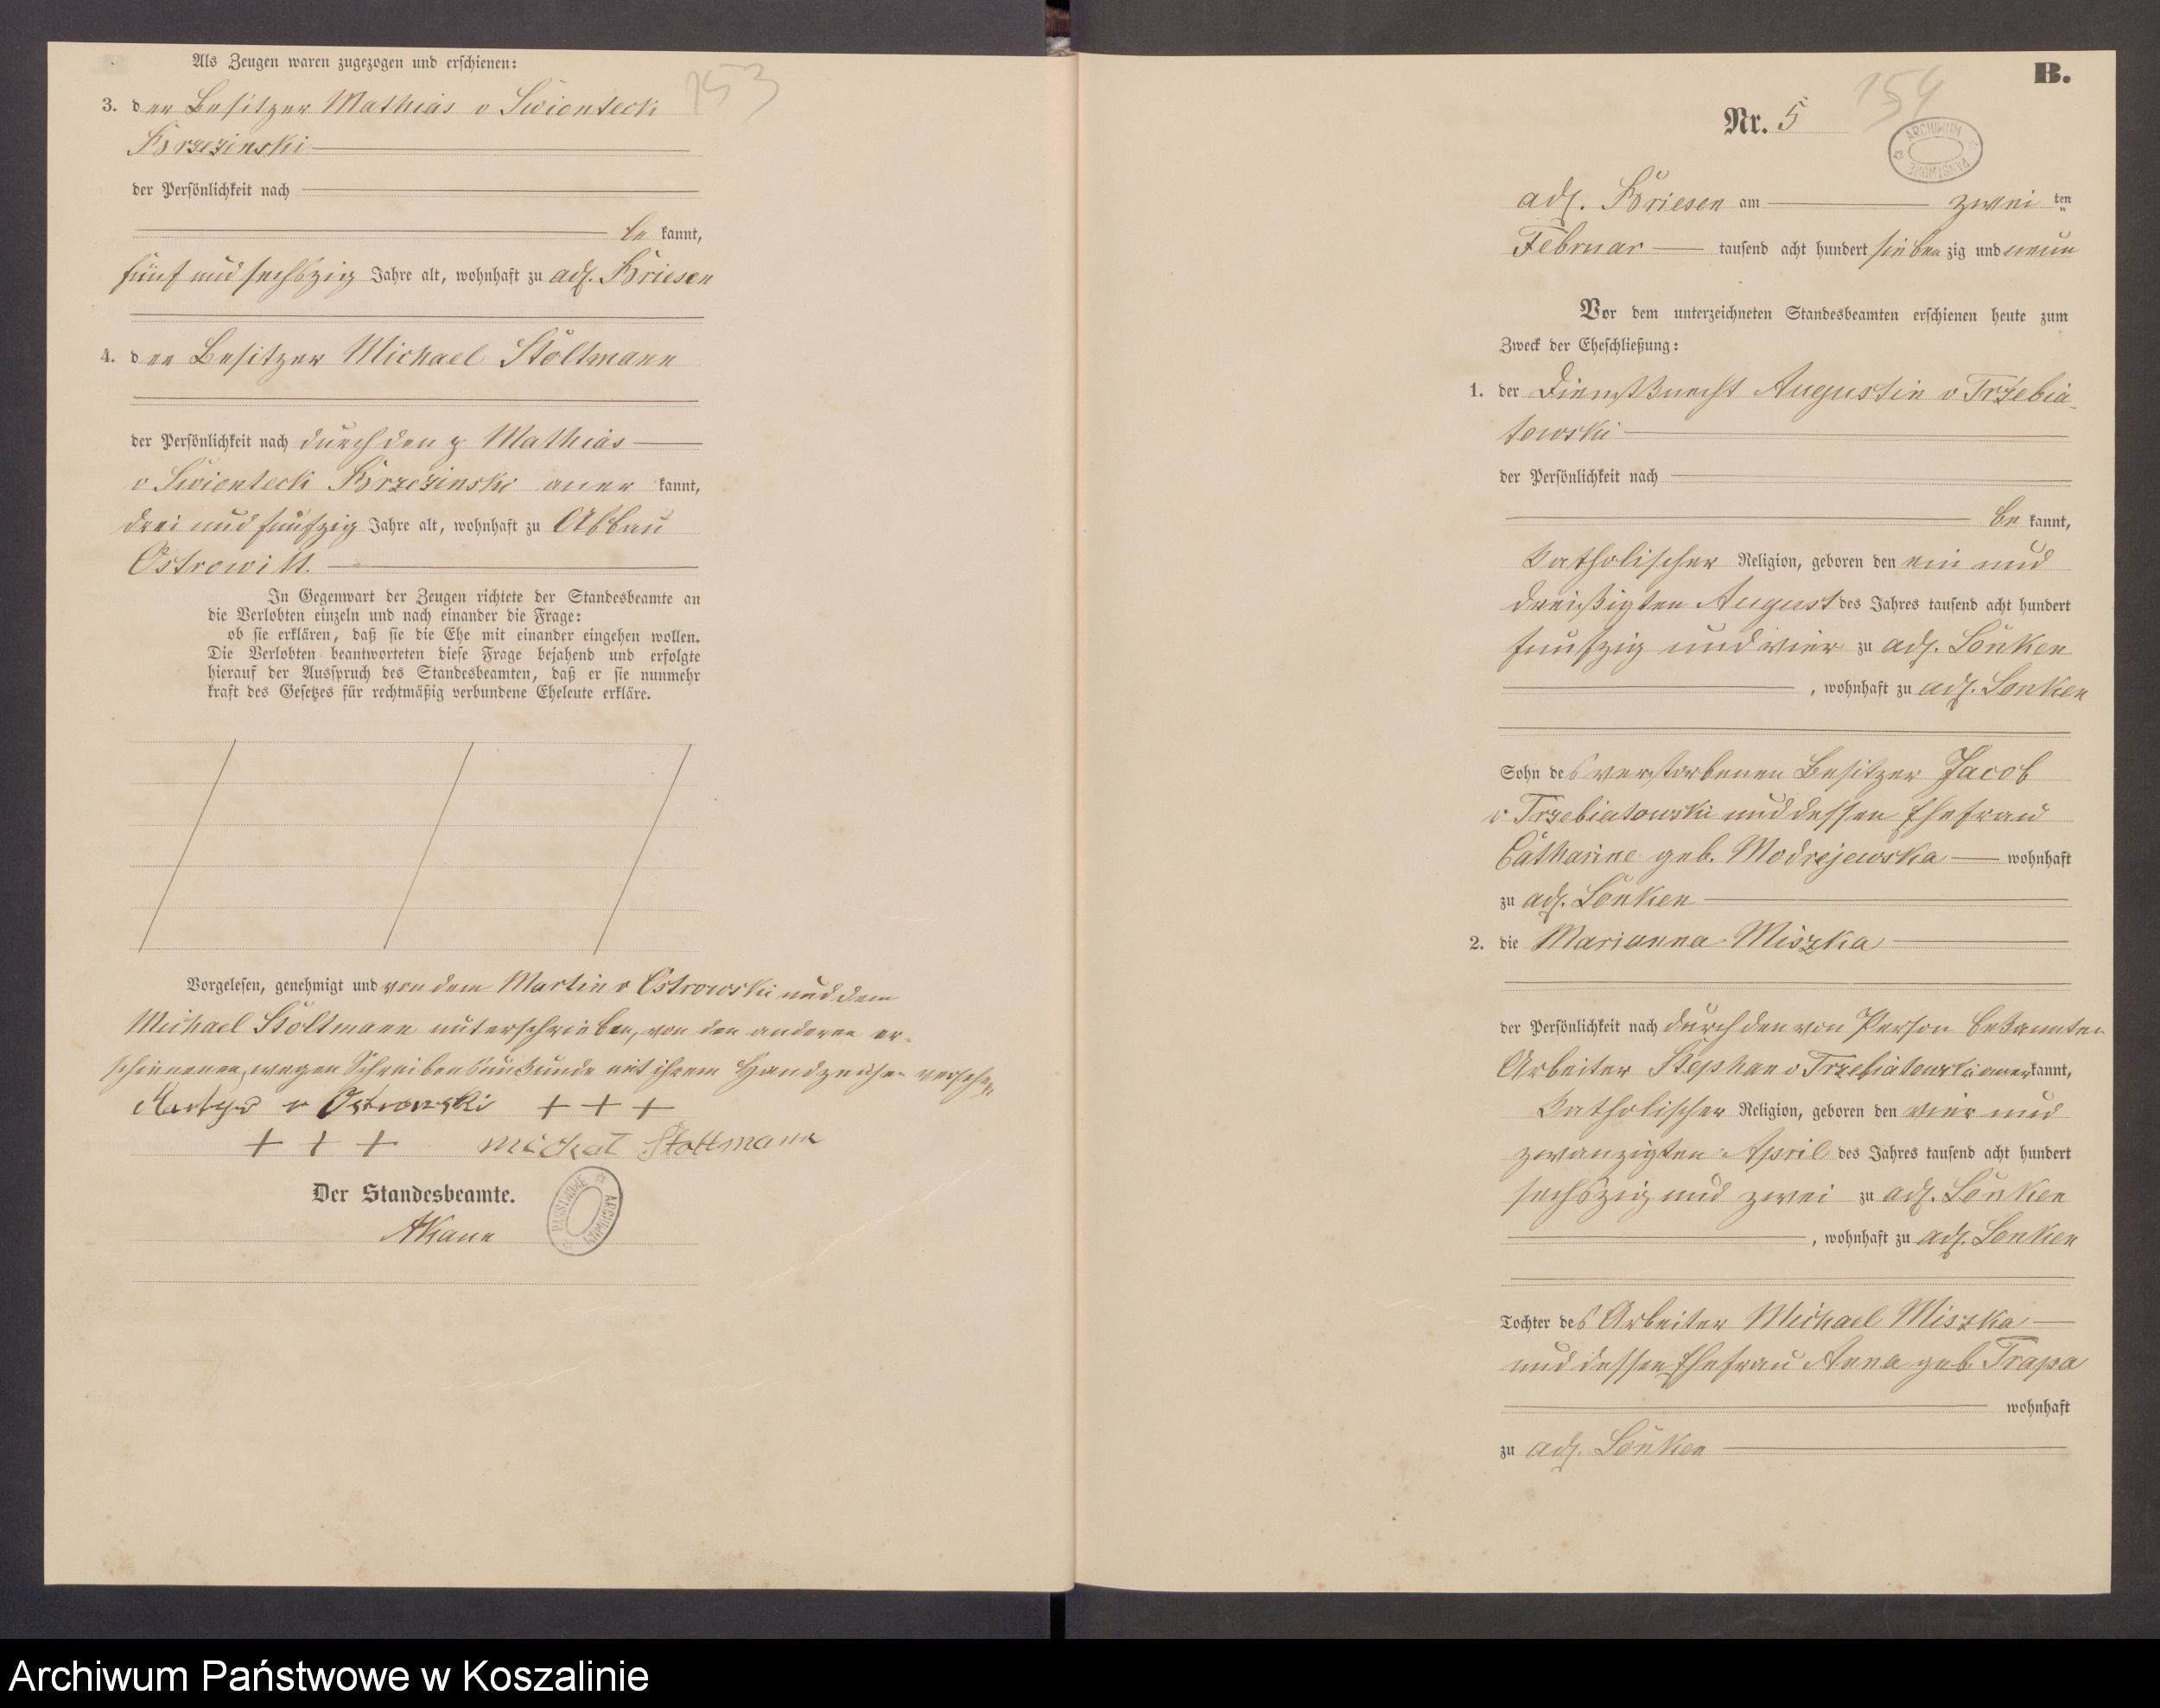 Als Zeugen waren zugezogen und erschienen:
153
3. der Besitzer Mathias v Swientecki
Brzezinski
der Persönlichkeit nach
be kannt,
fünf und sechszig Jahre alt, wohnhaft zu adl. Briesen
4. der Besitzer Michael Stoltmann
der Persönlichkeit nach durch den p Mathias
v Swienteck Brzezinski aner kannt,
drei und fünfzig Jahre alt, wohnhaft zu Abbau
Ostrowitt.
In Gegenwart der Zeugen richtete der Standesbeamte an
die Verlobten einzeln und nach einander die Frage:
ob sie erklären, daß sie die Ehe mit einander eingehen wollen.
Die Verlobten beantworteten diese Frage bejahend und erfolgte
hierauf der Ausspruch des Standesbeamten, daß er sie nunmehr
kraft des Gesetzes für rechtmäßig verbundene Eheleute erkläre.
Vorgelesen, genehmigt und von dem Martin v Ostrowski und dem
Michael Stoltmann unterschrieben, von den anderen er-
schienenen, wegen Schreibensunkunde mit ihrem Handzeichen versehen
v Ostrowski + + +
+ + + Michal Stoltmann
Der Standesbeamte.
ARCHIWUM PAŃSTWOWE
AKann
B.
154
Nr. 5
ARCHIWUM PAŃSTWOWE
adl. Briesen am zwei ten
Februar tausend acht hundert sieben zig und neun
Vor dem unterzeichneten Standesbeamten erschienen heute zum
Zweck der Eheschließung:
1. der Dienstknecht Augustin v Trzebia-
towski
der Persönlichkeit nach
be kannt,
katholischer Religion, geboren den ein und
dreißigten August des Jahres tausend acht hundert
fünfzig und vier zu adl. Lonken
, wohnhaft zu adl. Lonken
Sohn des verstorbenen Besitzer Jacob
v Trzebiatowski und dessen Ehefrau
Catharine geb. Modrejewska wohnhaft
zu adl. Lonken
2. die Marianna Miszka
der Persönlichkeit nach durch den von Person bekannten
Arbeiter Stephan v Trzebiatowski anerkannt,
katholischer Religion, geboren den vier und
zwanzigten April des Jahres tausend acht hundert
sechszig und zwei zu adl. Lonken
, wohnhaft zu adl. Lonken
Tochter des Arbeiter Michael Miszka
und dessen Ehefrau Anna geb. Trapa
wohnhaft
zu adl. Lonken
Archiwum Państwowe w Koszalinie